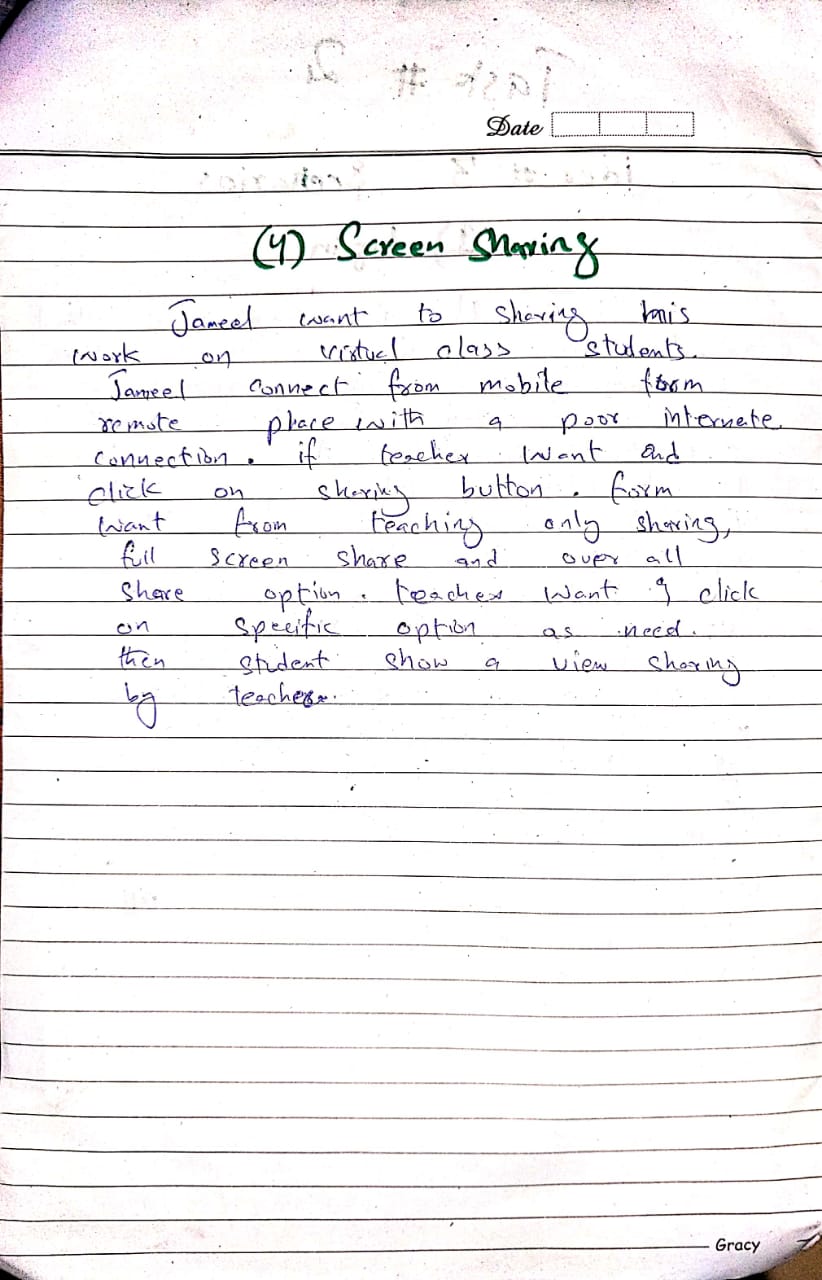 Date
(4) Screen Sharing
Jameel want to sharing this
work on virtual class students.
Jameel connect from mobile form
remote place with a poor internete
connection. if teacher want and
click on sharing button. form
want from teaching only sharing,
full screen share and over all
share option. teacher want & click
on specific option as need.
then student show a view sharing
by teacher.
Gracy